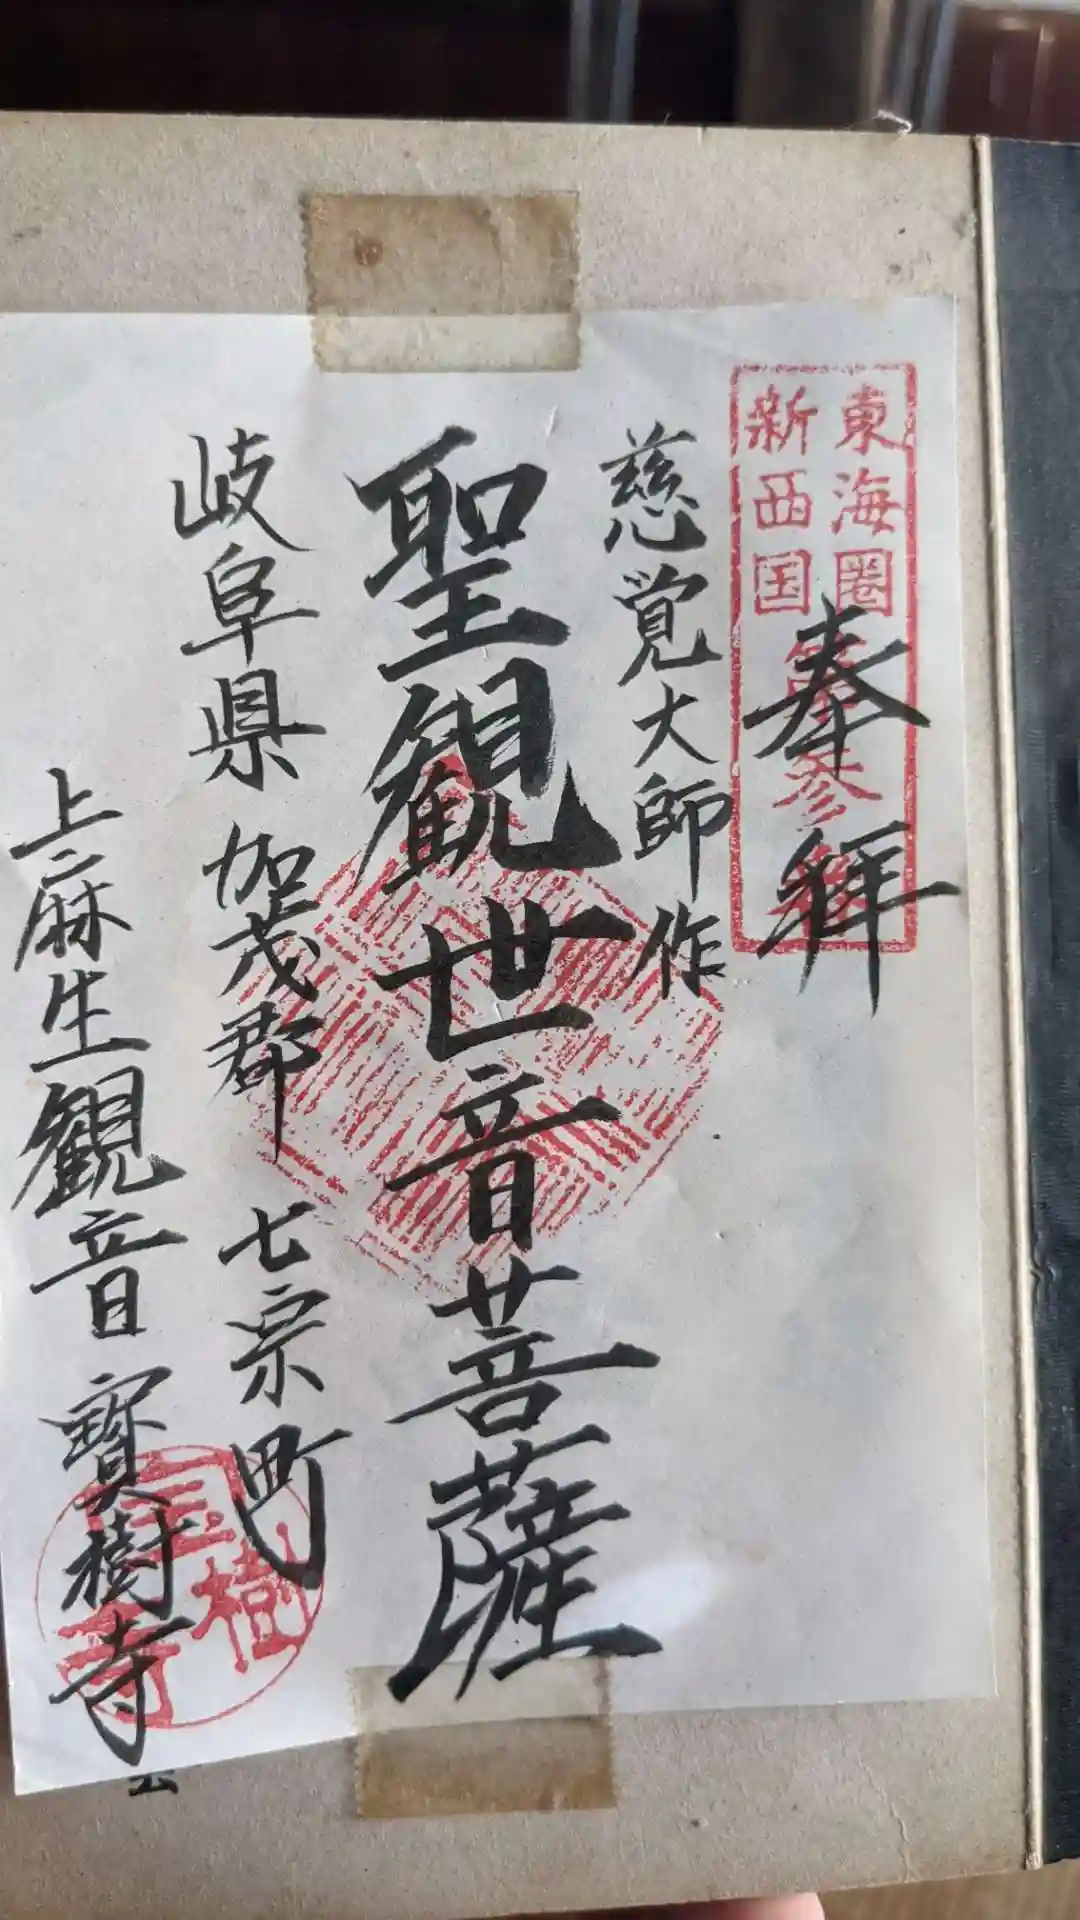 東海圏
新西国
第参番
奉拝
慈覚大師作
聖観世音菩薩
岐阜県 加茂郡 七宗町
上麻生観音 寳樹寺